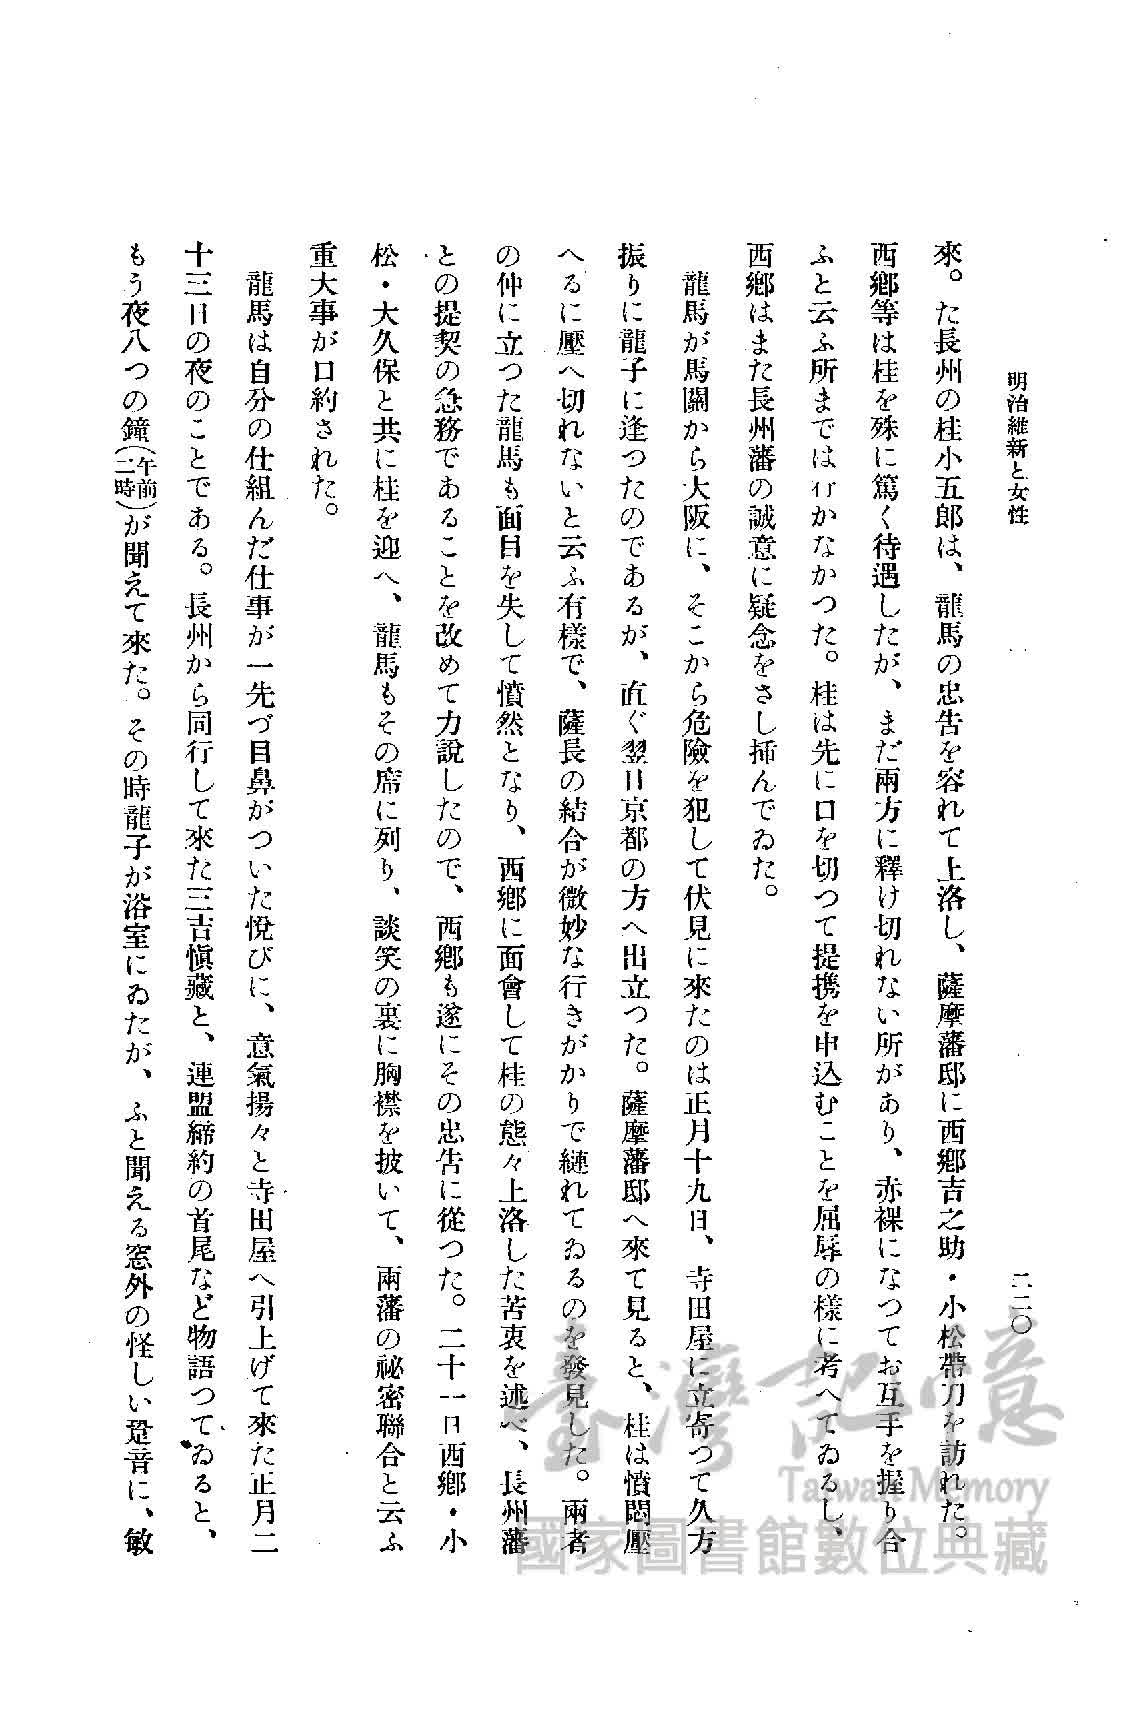 明治維新と女性
二二〇
來。た長州の桂小五郎は、龍馬の忠告を容れて上洛し、薩摩藩邸に西鄕吉之助・小松帶刀を訪れた。
西鄕等は桂を殊に篤く待遇したが、まだ兩方に釋け切れない所があり、赤裸になつてお互手を握り合
ふと云ふ所までは行かなかつた。桂は先に口を切つて提携を申込むことを屈辱の樣に考へてゐるし、
西鄕はまた長州藩の誠意に疑念をさし揷んでゐた。
龍馬が馬關から大阪に、そこから危險を犯して伏見に來たのは正月十九日、寺田屋に立寄つて久方
振りに龍子に逢つたのであるが、直ぐ翌日京都の方へ出立つた。薩摩藩邸へ來て見ると、桂は憤悶壓
へるに壓へ切れないと云ふ有樣で、薩長の結合が微妙な行きがかりで縺れてゐるのを發見した。兩者
の仲に立つた龍馬も面目を失して憤然となり、西鄕に面會して桂の態々上洛した苦衷を述べ、長州藩
との提契の急務であることを改めて力說したので、西鄕も遂にその忠告に從つた。二十一日西鄕・小
松・大久保と共に桂を迎へ、龍馬もその席に列り、談笑の裏に胸襟を披いて、兩藩の祕密聯合と云ふ
重大事が口約された。
龍馬は自分の仕組んだ仕事が一先づ目鼻がついた悅びに、意氣揚々と寺田屋へ引上げて來た正月二
十三日の夜のことである。長州から同行して來た三吉愼藏と、連盟締約の首尾など物語つてゐると、
もう夜八つの鐘(午前二時)が聞えて來た。その時龍子が浴室にゐたが、ふと聞える窓外の怪しい跫音に、敏
臺灣記憶
Taiwan Memory
國家圖書館數位典藏